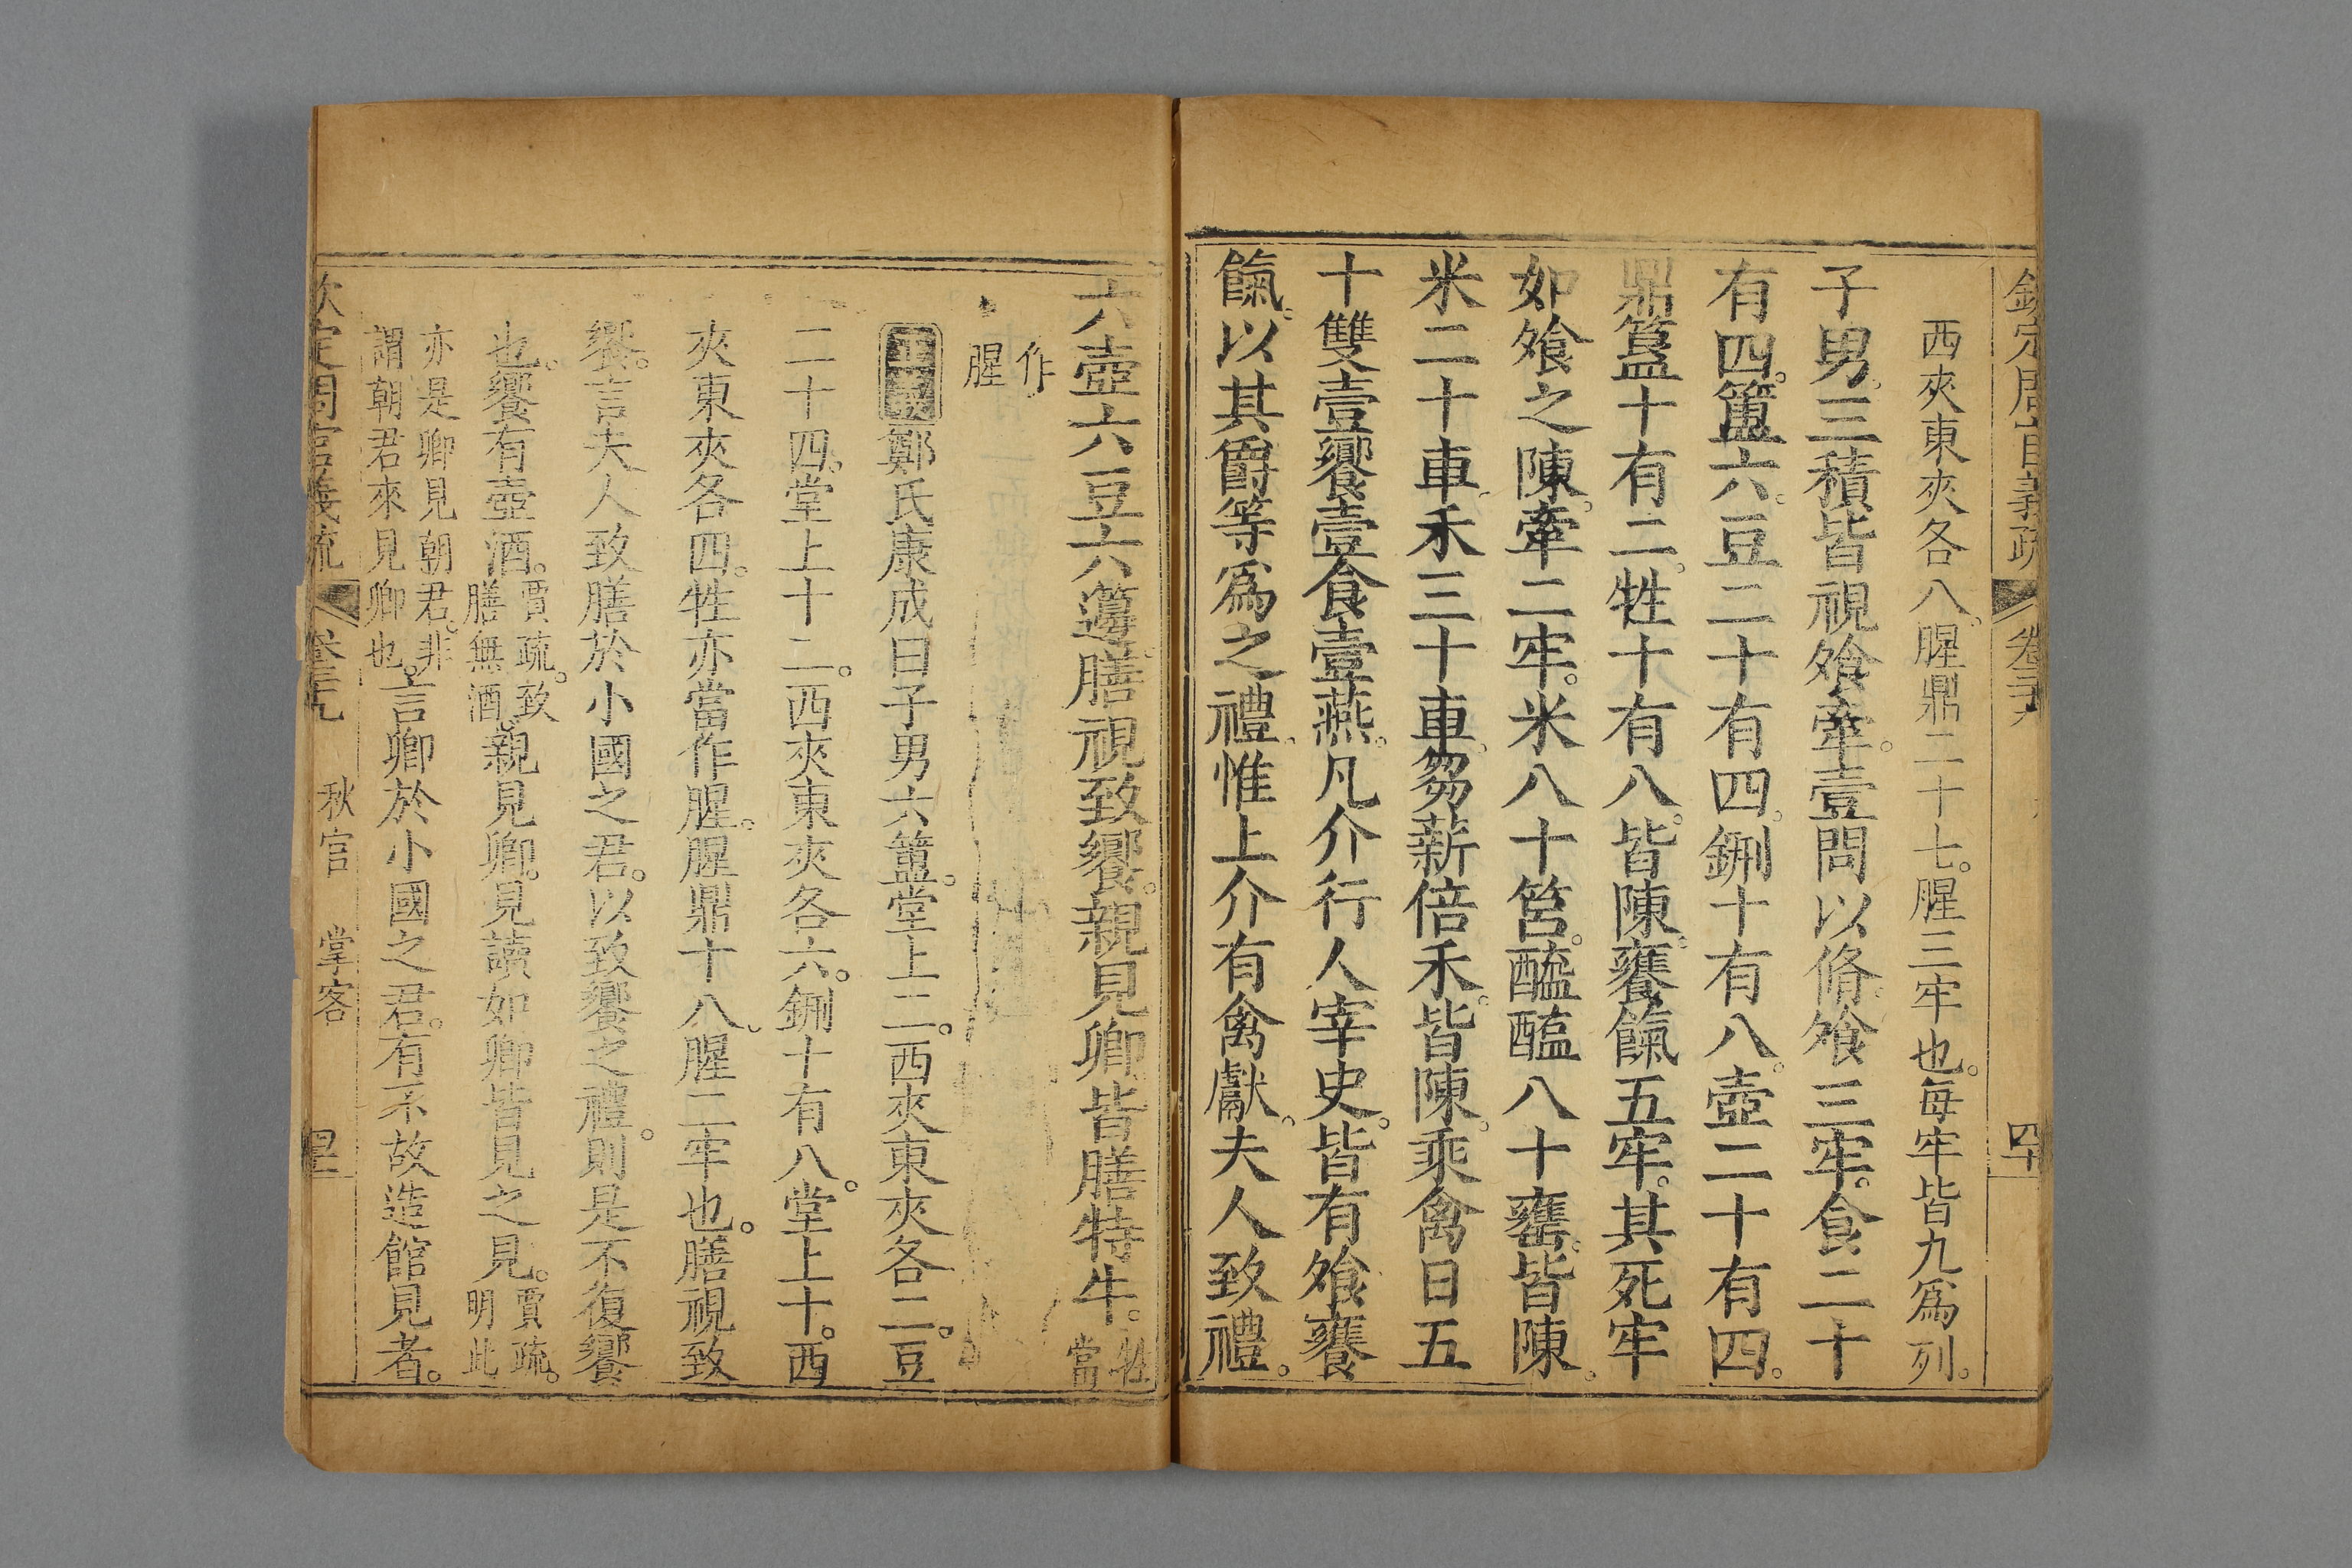 欽定周官義疏 卷三十九 四十
西夾東夾各八。腥鼎二十七。腥三牢也。每牢皆九爲列。
子男。三積皆視飧牽。壹問以脩。飧三牢。食二十
有四。簠六。豆二十有四。鉶十有八。壺二十有四。
鼎簋十有二。牲十有八。皆陳。饔餼五牢。其死牢
如飧之陳。牽二牢。米八十筥。醯醢八十罋。皆陳。
米二十車。禾三十車。芻薪倍禾。皆陳。乘禽日五
十雙。壹饗壹食壹燕。凡介行人宰史。皆有飧饔
餼。以其爵等爲之禮。惟上介有禽獻。夫人致禮。
六壺六豆六籩。膳視致饗。親見卿皆膳特牛。牲
當
作
腥
正義鄭氏康成曰子男六簠。堂上二。西夾東夾各二。豆
二十四。堂上十二。西夾東夾各六。鉶十有八。堂上十。西
夾東夾各四。牲亦當作腥。腥鼎十八。腥二牢也。膳視致
饗。言夫人致膳於小國之君。以致饗之禮。則是不復饗
也。饗有壺酒。賈疏。致
膳無酒。親見卿。見讀如卿皆見之見。賈疏。
明此
亦是卿見朝君。非
謂朝君來見卿也。言卿於小國之君。有不故造館見者。
欽定周官義疏 卷三十九 秋官 掌客